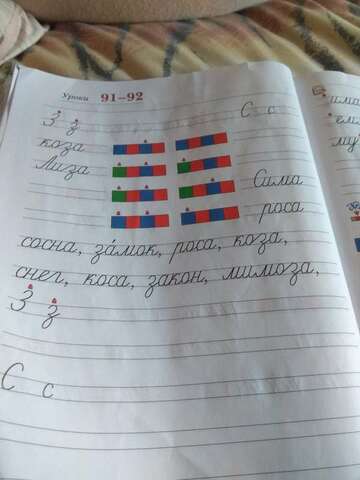 Уроки 91–92
З з
С с
коза
Лиза
Сима
роса
сосна, за́мок, роса, коза,
снег, коса, закон, мимоза,
З з
С с